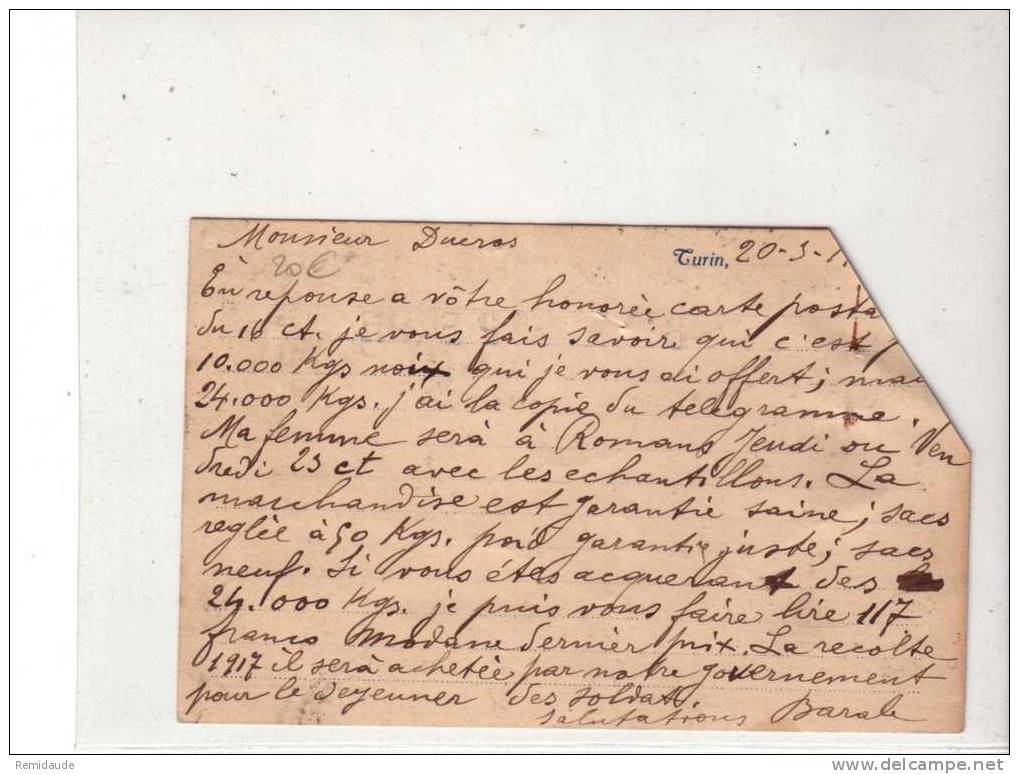 Monsieur Ducros
Turin, 20-3-1
20€
En reponse a vôtre honorèe carte posta
du 16 ct. je vous fais savoir qui c'est
10.000 Kgs noix qui je vous ai offert; mai
24.000 Kgs. j'ai la copie du telegramme.
Ma femme serà à Romans Jeudi ou Ven
dredi 23 ct avec les echantillons. La
marchandise est garantie saine; sacs
reglèe à 50 Kgs. poid garantie juste; sacs
neuf. Si vous étes acquerant des
24.000 Kgs. je puis vous faire lire 117
franco Modane dernièr prix. La recolte
1917 il serà achetèe par notre gouvernement
pour le dejeuner des soldats
salutations Barale
Remidaude
delcampe.net